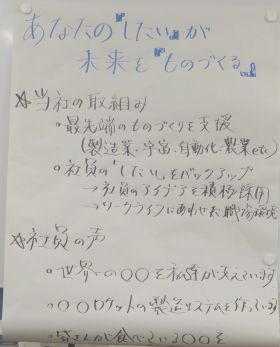 あなたの『したい』が
未来を『ものづくる』
☆当社の取組み
・最先端のものづくりを支援
(製造業、宇宙、自動化、製業etc)
・社員の「したい」をバックアップ
→社員のアイデアを積極採用
→ワークライフにあわせた職場環境
☆社員の声
・世界一の〇〇を私達が支えています
・〇〇ロケットの製造システムを作っています
・皆さんが食べている〇〇を